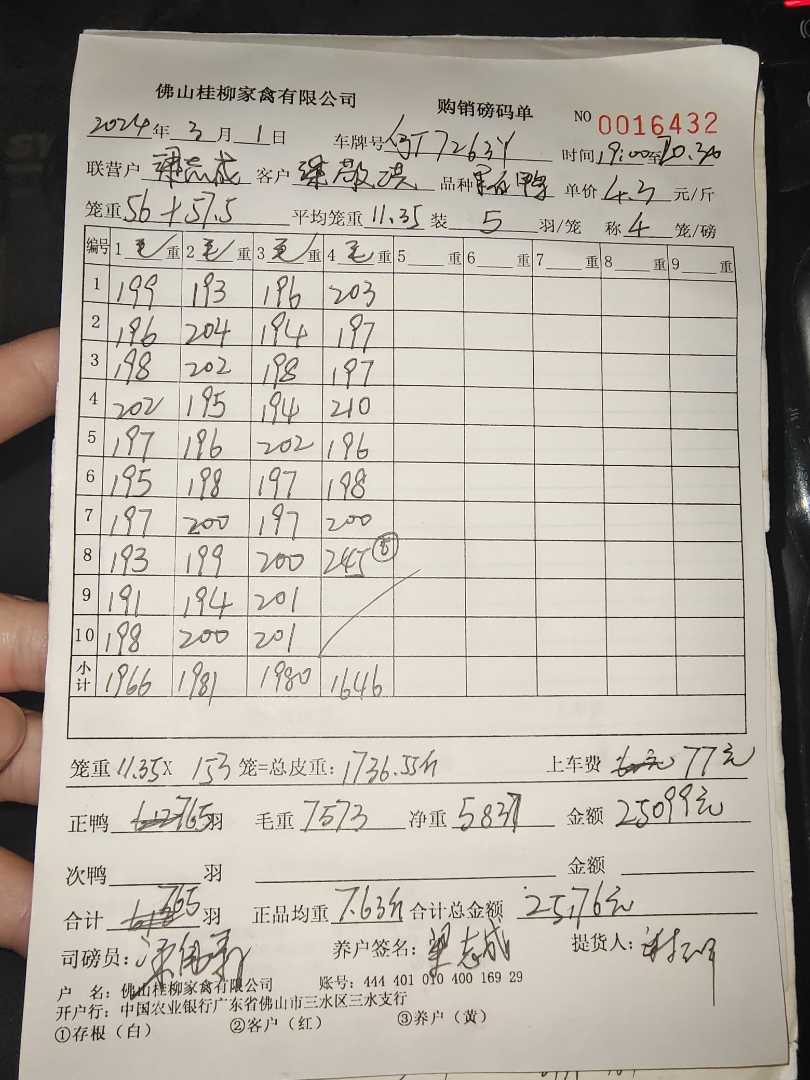 佛山桂柳家禽有限公司 购销磅码单 NO 0016432
2024年3月1日 车牌号 7263Y 时间19:00至20:30
联营户 梁志成 客户 梁敬洪 品种 单价4.3元/斤
笼重56+57.5 平均笼重11.35 装5羽/笼 称4笼/磅
编号 1毛重 2毛重 3毛重 4毛重 5重 6重 7重 8重 9重
1 199 193 196 203
2 196 204 194 197
3 198 202 198 197
4 202 195 194 210
5 197 196 202 196
6 195 198 197 198
7 197 200 197 200
8 193 199 200 245⑤
9 191 194 201
10 198 200 201
小计 1966 1981 1980 1646
笼重11.35X 153笼=总皮重:1736.55斤 上车费 77元
正鸭 765羽 毛重7573 净重5837 金额25099元
次鸭 羽 金额
合计 765羽 正品均重7.63斤 合计总金额25176元
司磅员: 养户签名:梁志成 提货人:
户 名:佛山桂柳家禽有限公司 账号:444 401 010 400 169 29
开户行:中国农业银行广东省佛山市三水区三水支行
①存根(白) ②客户(红) ③养户(黄)